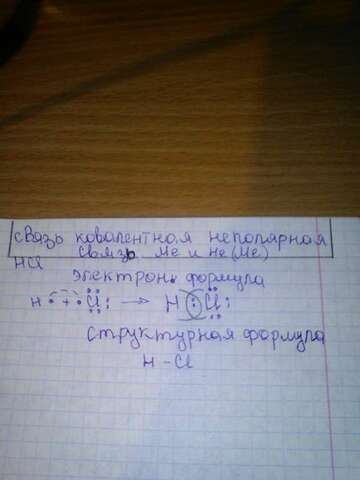 связь ковалентная неполярная
связь Ме и не(Ме)
HCl
электрон. формула
H · + · Cl : → H : Cl :
структурная формула
H - Cl